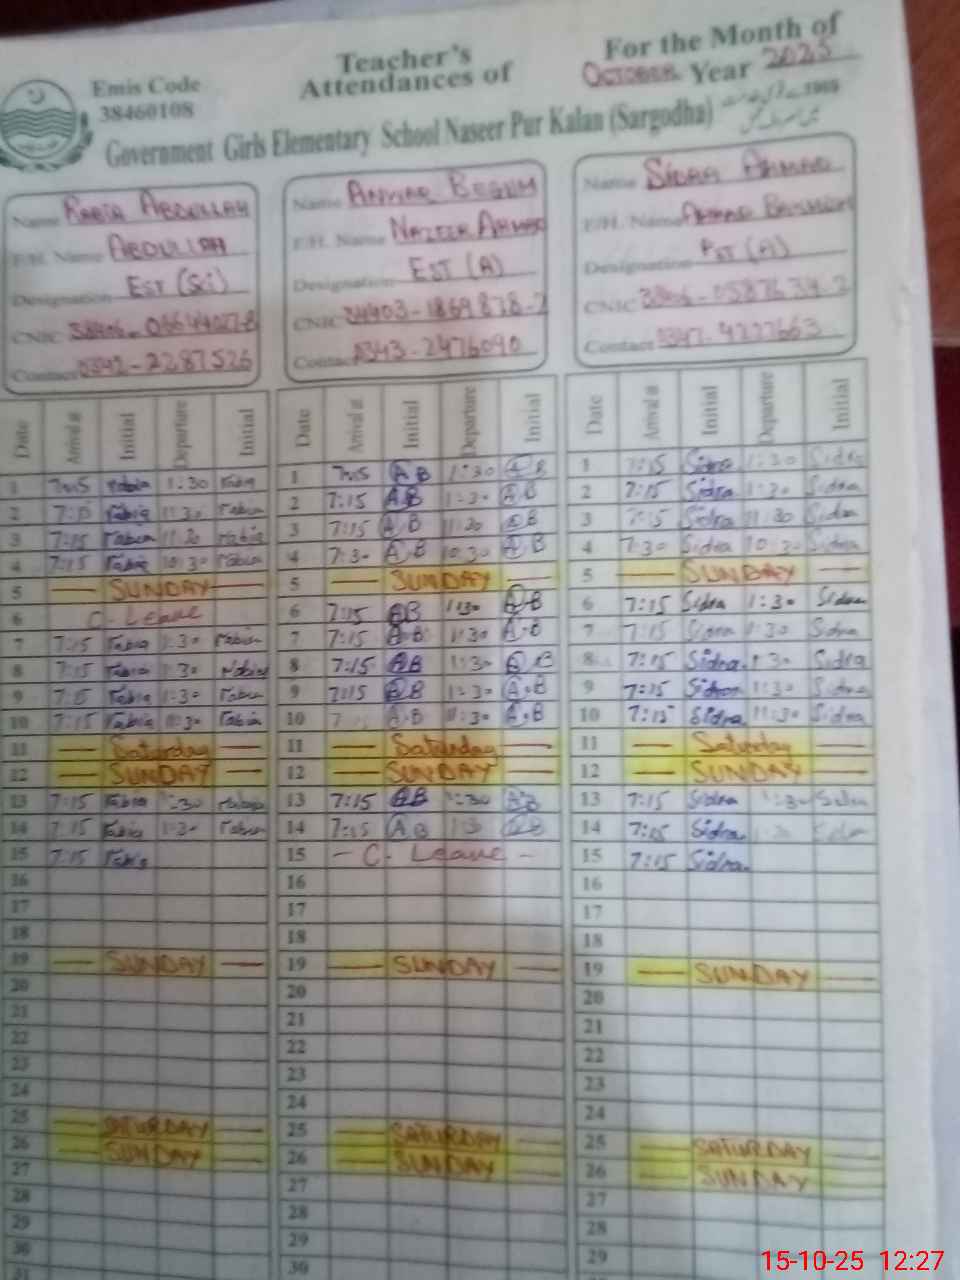 Teacher's
Attendances of
For the Month of
October Year 2025
Emis Code
38460108
Government Girls Elementary School Naseer Pur Kalan (Sargodha)
Name Rabia Abdullah
F/H. Name Abdullah
Designation Est (Sci)
CNIC
Contact 0342-2287526
Name Anwar Begum
F/H. Name Nazeer Ahmad
Designation EST (A)
CNIC 34403-1869878-2
Contact 0343-2476090
Name Sidra Ahmad
F/H. Name Ahmad
Designation (A)
CNIC
Contact 0347-4227663
Date Arrival at Initial Departure Initial Date Arrival at Initial Departure Initial Date Arrival at Initial Departure Initial
1 7:15 Rabia 1:30 Rabia 1 7:15 AB 1:30 AB 1 7:15 Sidra 1:30 Sidra
2 7:15 Rabia 11:30 Rabia 2 7:15 AB 1:30 AB 2 7:15 Sidra 1:30 Sidra
3 7:15 Rabia 11:30 Rabia 3 7:15 AB 11:30 AB 3 7:15 Sidra 11:30 Sidra
4 7:15 Rabia 10:30 Rabia 4 7:30 AB 10:30 AB 4 7:30 Sidra 10:30 Sidra
5 — SUNDAY — 5 — SUNDAY — 5 — SUNDAY —
6 C. Leave 6 7:15 AB 1:30 AB 6 7:15 Sidra 1:30 Sidra
7 7:15 Rabia 1:30 Rabia 7 7:15 AB 1:30 A.B 7 7:15 Sidra 1:30 Sidra
8 7:15 Rabia 1:30 Rabia 8 7:15 AB 1:30 AB 8 7:15 Sidra 1:30 Sidra
9 7:15 Rabia 1:30 Rabia 9 7:15 AB 1:30 A.B 9 7:15 Sidra 1:30 Sidra
10 7:15 Rabia 11:30 Rabia 10 7 A.B 11:30 A.B 10 7:15 Sidra 11:30 Sidra
11 — Saturday — 11 — Saturday — 11 — Saturday —
12 — SUNDAY — 12 — SUNDAY — 12 — SUNDAY —
13 7:15 Rabia 1:30 Rabia 13 7:15 AB 1:30 AB 13 7:15 Sidra 1:30 Sidra
14 7:15 Rabia 1:30 Rabia 14 7:15 AB 1:3 AB 14 7:15 Sidra Sidra
15 7:15 Rabia 15 — C. Leave — 15 7:15 Sidra
16 16 16
17 17 17
18 18 18
19 — SUNDAY — 19 — SUNDAY — 19 — SUNDAY —
20 20 20
21 21 21
22 22 22
23 23 23
24 24 24
25 — SATURDAY — 25 — SATURDAY — 25 — SATURDAY —
26 — SUNDAY — 26 — SUNDAY — 26 — SUNDAY —
27 27 27
28 28 28
29 29 29
30 30
31
15-10-25 12:27